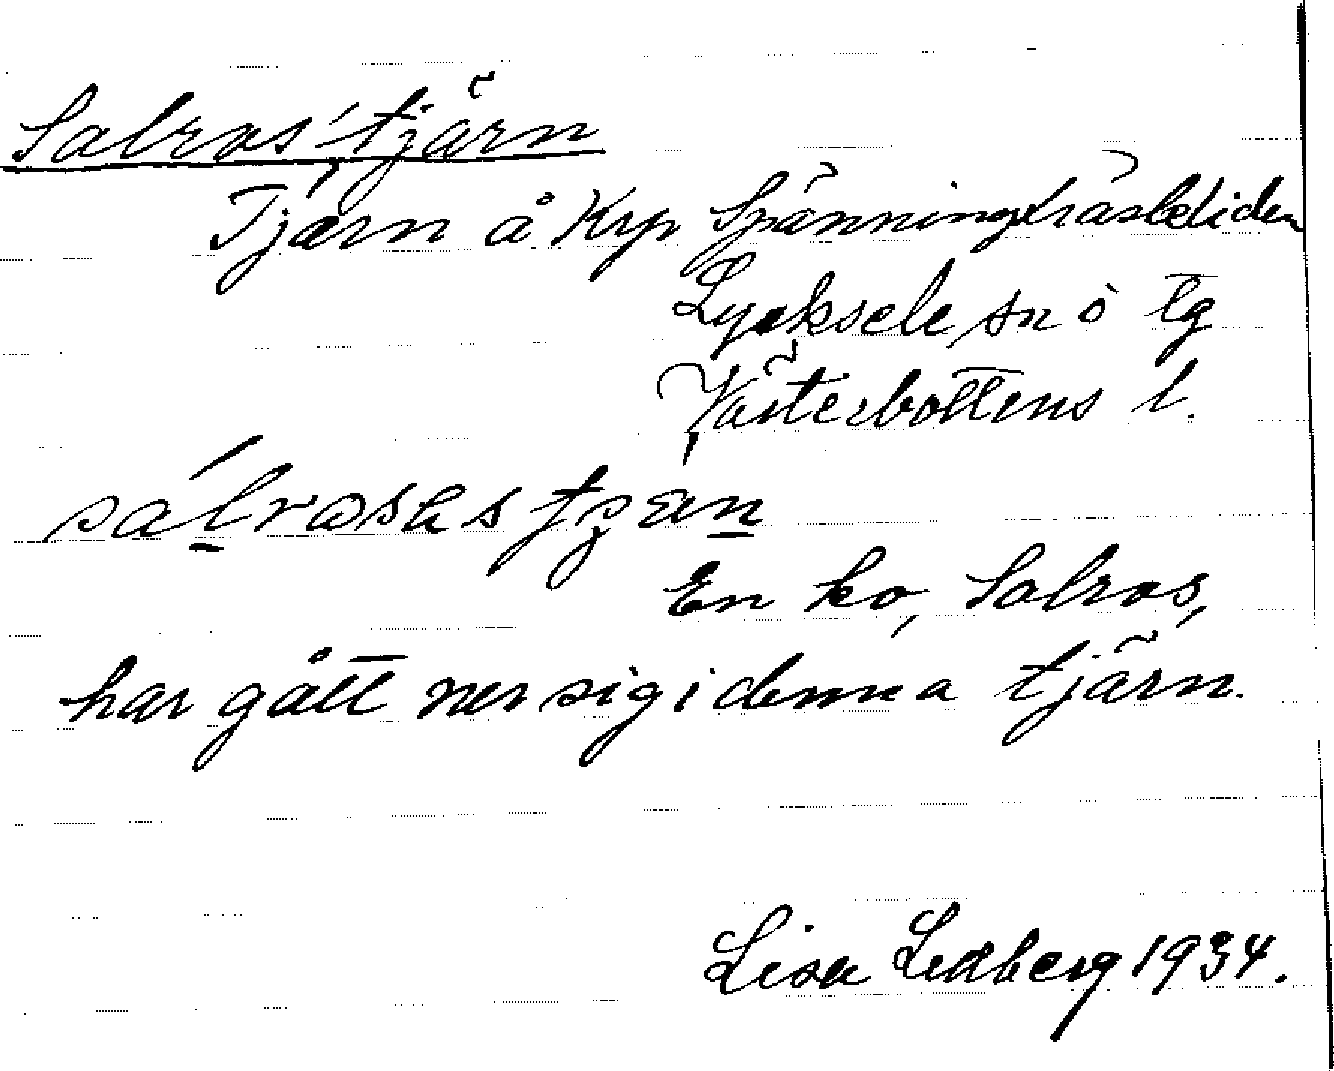 Salros'tjärn
Tjärn å Krp Spänningträskliden
Lycksele sn o tg
Västerbottens l.
En ko, Salros,
har gått ner sig i denna tjärn.
Lisa Lidberg 1934.